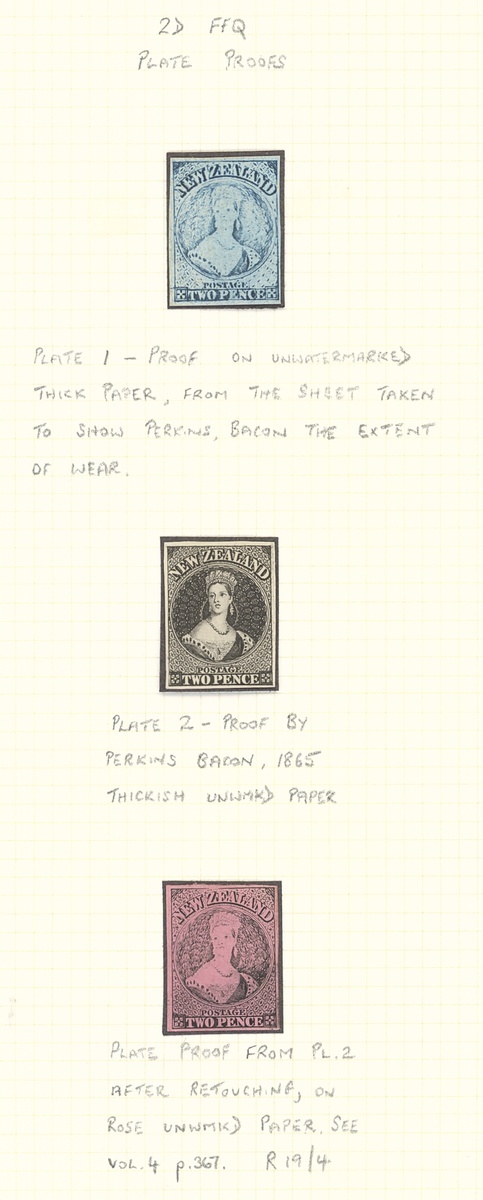 2D FFQ
PLATE PROOFS
NEW ZEALAND
POSTAGE
TWO PENCE
PLATE 1 – PROOF ON UNWATERMARKED
THICK PAPER, FROM THE SHEET TAKEN
TO SHOW PERKINS, BACON THE EXTENT
OF WEAR.
NEW ZEALAND
POSTAGE
TWO PENCE
PLATE 2 – PROOF BY
PERKINS BACON, 1865
THICKISH UNWMKD PAPER
NEW ZEALAND
POSTAGE
TWO PENCE
PLATE PROOF FROM PL.2
AFTER RETOUCHING, ON
ROSE UNWMKD PAPER. SEE
VOL. 4 p.367. R 19/4